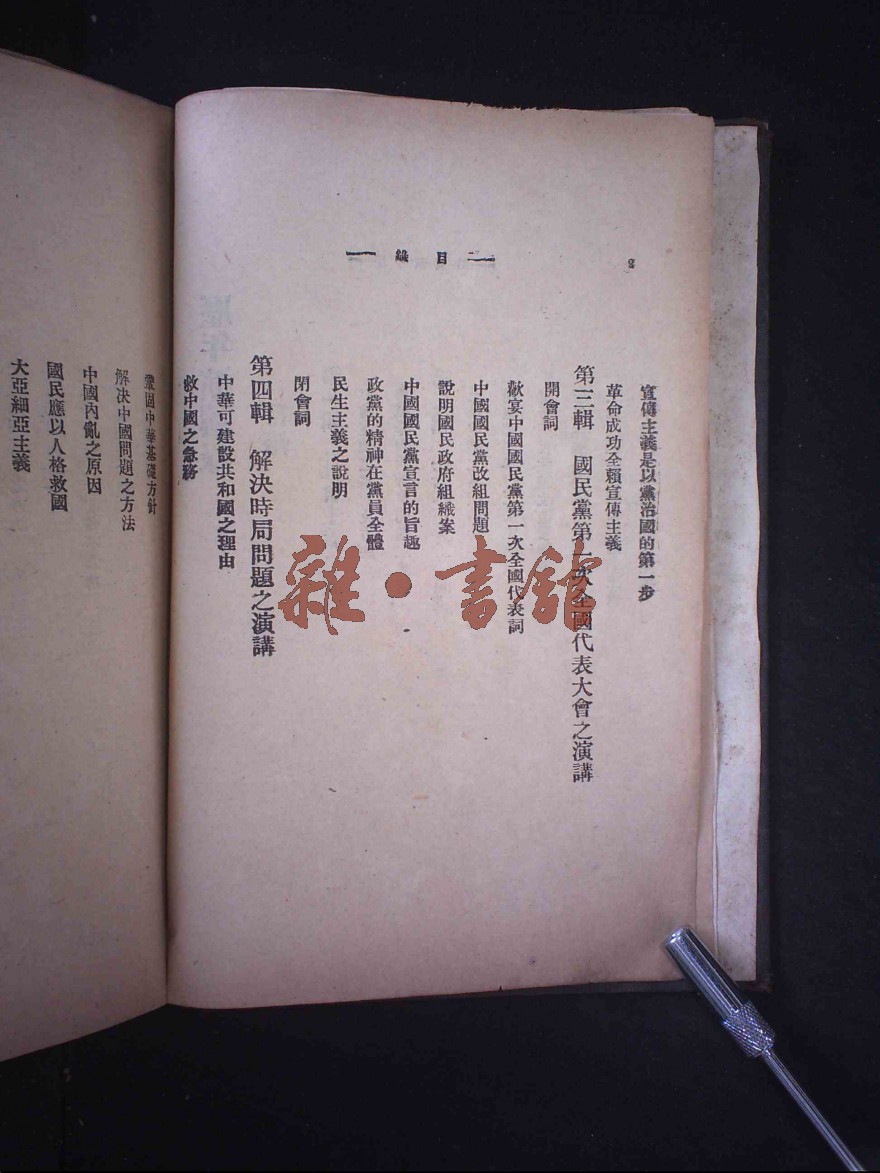 二 目錄 一
2
宣傳主義是以黨治國的第一步
革命成功全賴宣傳主義
第三輯 國民黨第一次全國代表大會之演講
開會詞
歡宴中國國民黨第一次全國代表詞
中國國民黨改組問題
說明國民政府組織案
中國國民黨宣言的旨趣
政黨的精神在黨員全體
民生主義之說明
閉會詞
第四輯 解決時局問題之演講
中華可建設共和國之理由
救中國之急務
鞏固中華基礎方針
解決中國問題之方法
中國內亂之原因
國民應以人格救國
大亞細亞主義
雜·書館